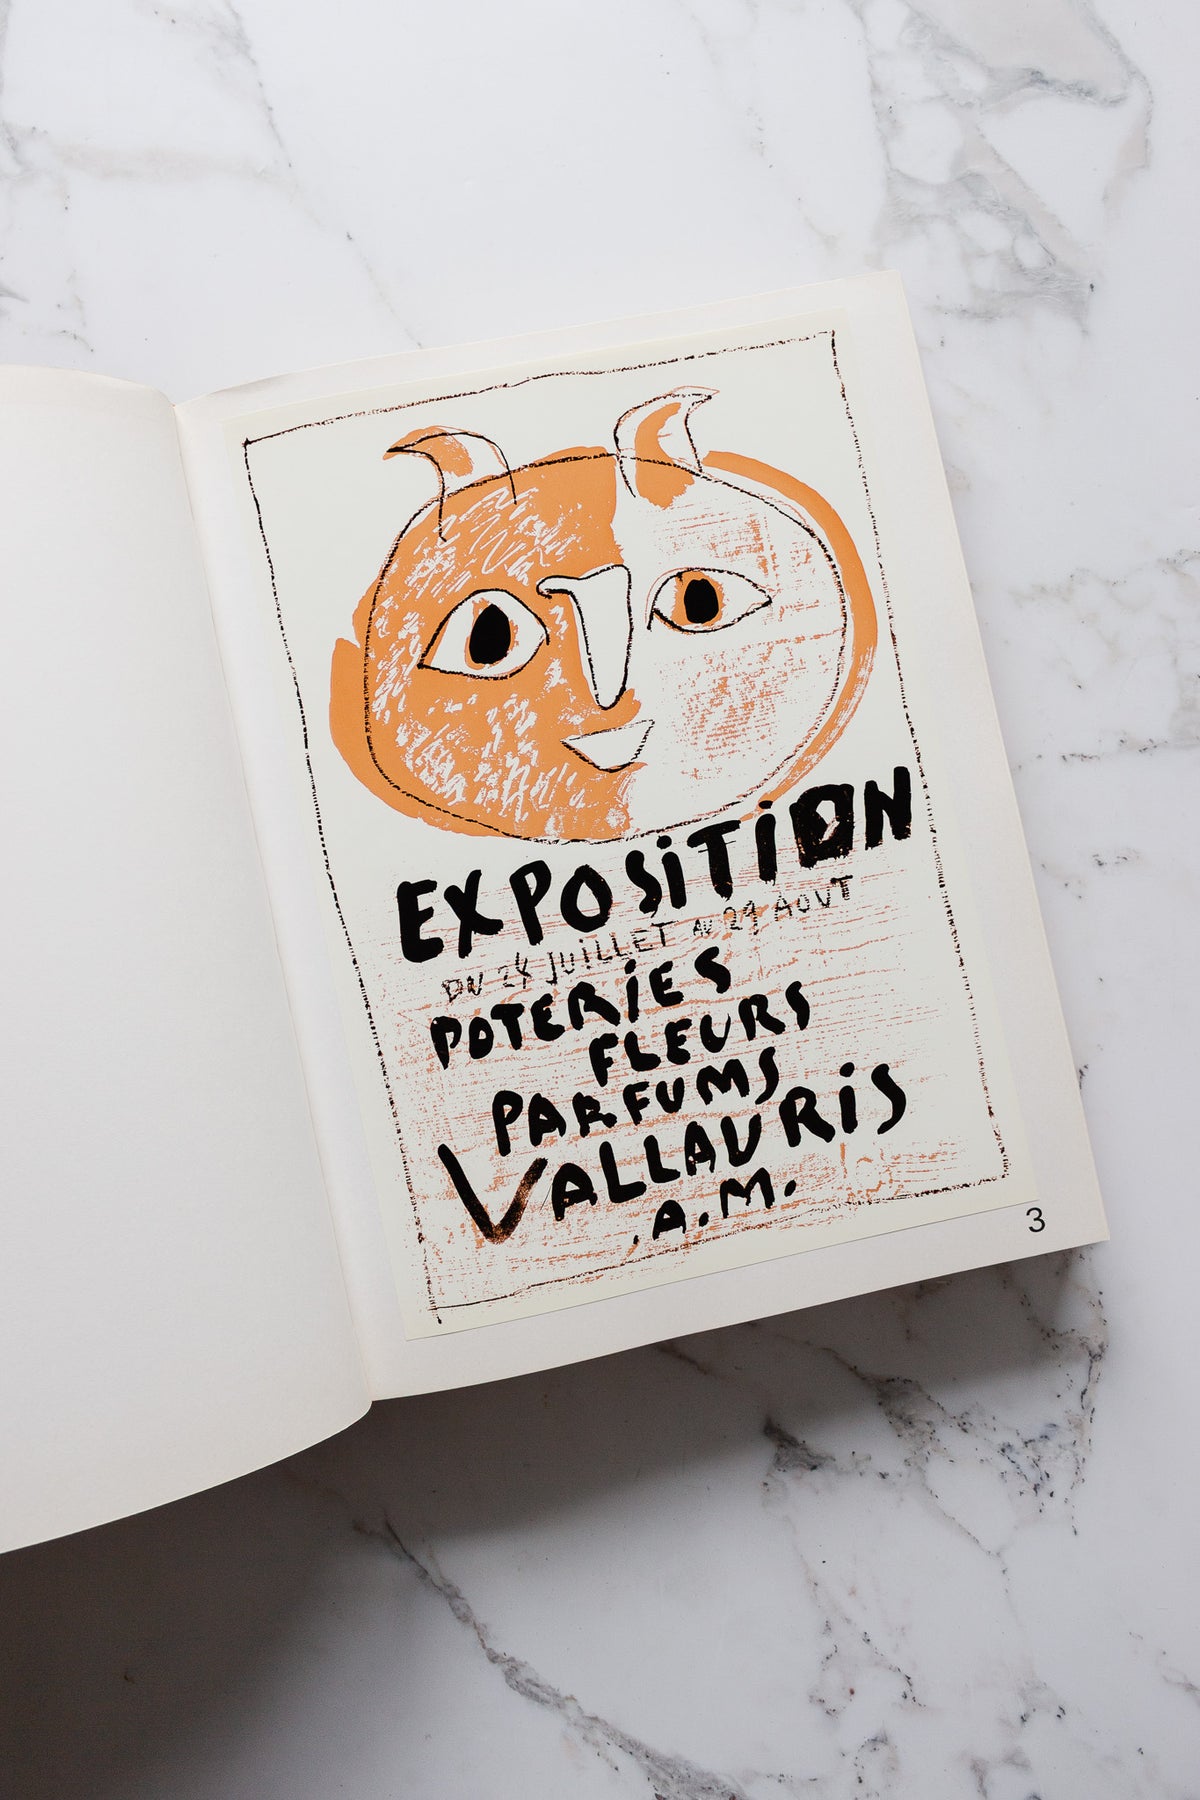 EXPOSITION
DU 24 JUILLET AU 29 AOUT
POTERIES
FLEURS
PARFUMS
VALLAURIS
A.M.
3